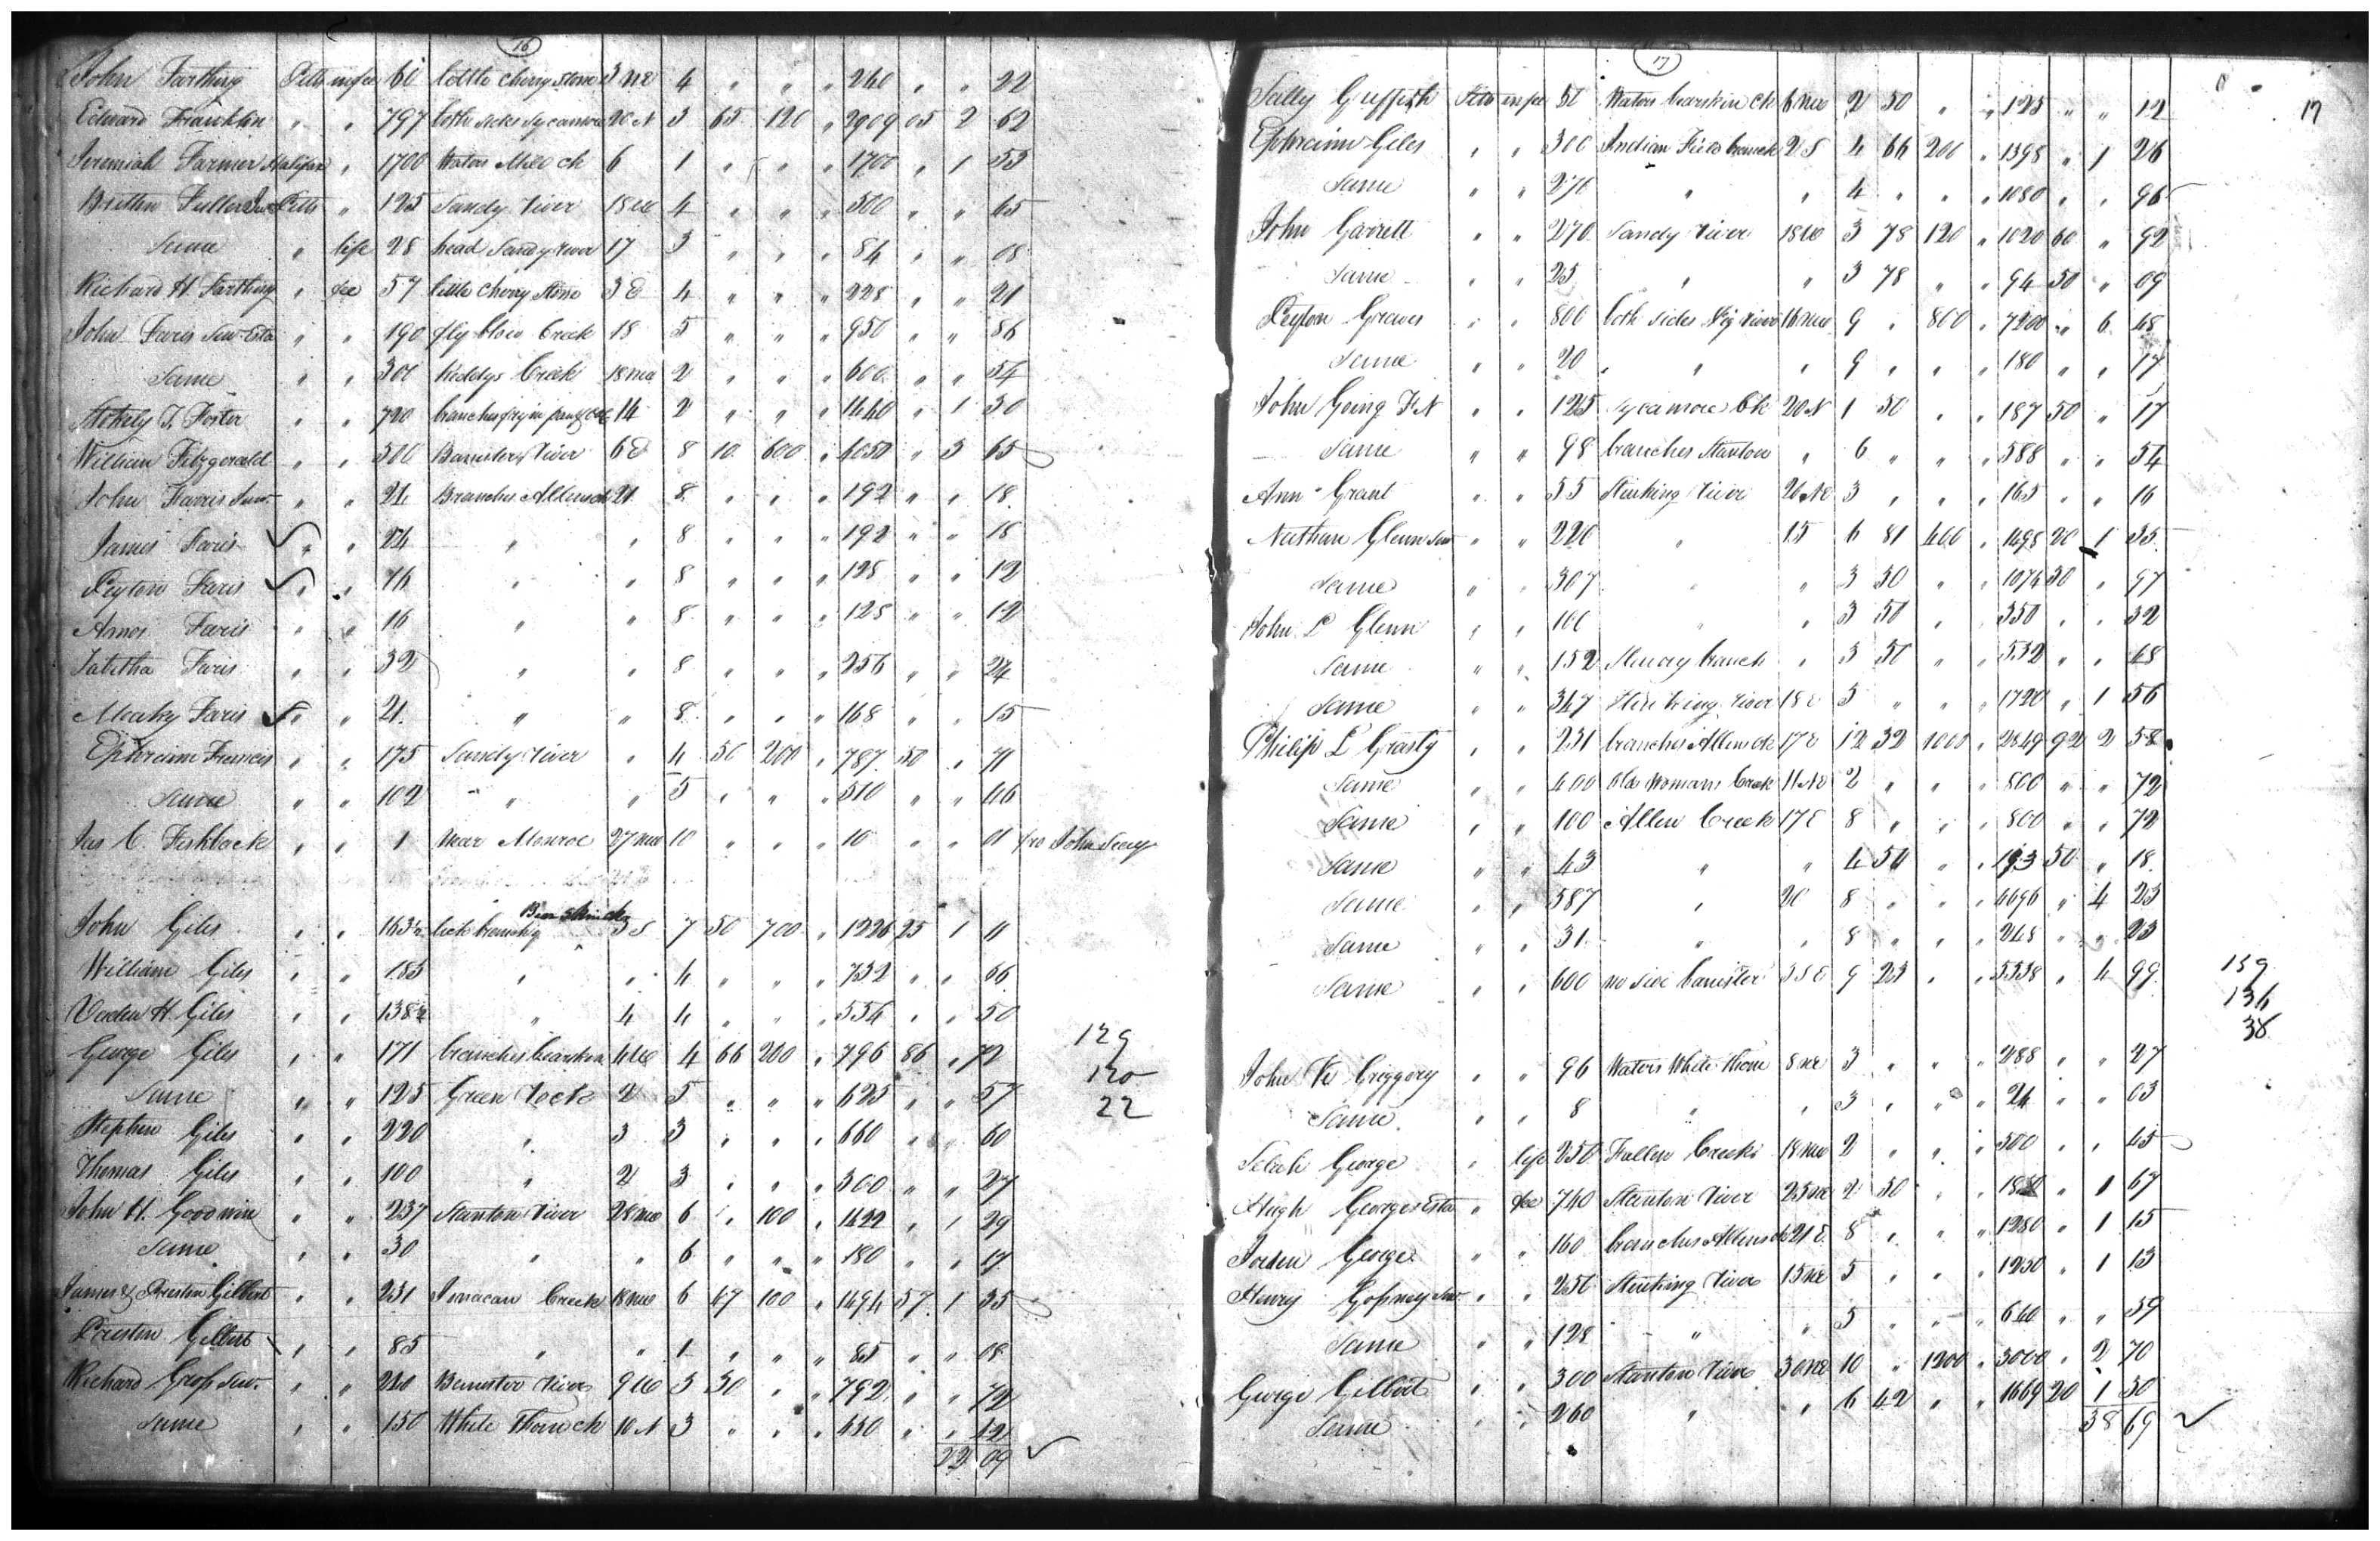 16
John Farthing Pitts in fee 60 little Cherry Stone 3 NE 4 " " " 240 " " 22
Edward Franklin " " 797 both sides Sycamore 20 N 3 65 120 " 2909 05 2 62
Jeremiah Farmer Halifax " 1700 Waters Mill Ck 6 1 " " " 1700 " 1 53
Brittn Fuller Pitts " 125 Sandy River 18 W 4 " " " 500 " " 45
Same " life 28 head Sandy River 17 3 " " " 84 " " 08
Richard H. Farthing " fee 57 little Cherry Stone 3 E 4 " " " 228 " " 21
John Faris Senr Esta " " 190 fly blow Creek 18 5 " " " 950 " " 86
Same " " 300 Creek 18 NW 2 " " " 600 " " 54
T. Foster " " 720 branches 14 2 " " " 1440 " 1 30
William Fitzgerald " " 500 Banister River 6 E 8 10 600 " 4050 " 3 65
John Farris Junr " " 24 Branches Allens ck 21 8 " " " 192 " " 18
James Faris " " 24 " " 8 " " " 192 " " 18
Peyton Faris " " 16 " " 8 " " " 128 " " 12
Amos Faris " " 16 " " 8 " " " 128 " " 12
Tabitha Faris " " 32 " " 8 " " " 256 " " 24
Faris " " 21 " " 8 " " " 168 " " 15
Ephraim Francis " " 175 Sandy River " 4 50 200 " 787 50 " 71
Same " " 102 " " 5 " " " 510 " " 46
Jas C. Fishback " " 1 Near Monroe 27 NW 10 " " " 10 " " 01 fro John
John Giles " " 163½ lick branch Bearskin 3 S 7 50 700 " 1226 25 1 11
William Giles " " 183 " " 4 " " " 732 " " 66
H. Giles " " 138½ " 4 4 " " " 554 " " 50
George Giles " " 171 branches bearskin 4 W 4 66 200 " 796 86 " 72
129
Same " " 125 Green Rock 2 5 " " " 625 " " 57
120
Stephen Giles " " 220 " 3 3 " " " 660 " " 60
22
Thomas Giles " " 100 " 2 3 " " " 300 " " 27
John H. Goodwin " " 237 Stanton River 28 NW 6 " 100 " 1422 " 1 29
Same " " 30 " " 6 " " " 180 " " 17
James & Preston Gilbert " " 231 Creek 18 NW 6 47 100 " 1494 57 1 35
Preston Gilbert " " 85 " " 1 " " " 85 " " 08
Richard Goss Senr. " " 240 Banister River 9 W 3 30 " " 792 " " 72
Same " " 150 White Thorn ck 10 N 3 " " " 450 " " 42
22 09
17
17
Sally Griffith Pitts in fee 50 Waters bearskin ck 6 NW 2 50 " " 125 " " 12
Ephraim Giles " " 300 Indian Field branch 2 S 4 66 200 " 1398 " 1 26
Same " " 270 " " 4 " " " 1080 " " 96
John Garrett " " 270 Sandy River 18 W 3 78 120 " 1020 60 " 92
Same " " 25 " " 3 78 " " 94 50 " 09
Peyton Graves " " 800 both sides Pig River 16 NW 9 " 800 " 7200 " 6 48
Same " " 20 " " 9 " " " 180 " " 17
John Going F.N " " 125 Sycamore Ck 20 N 1 50 " " 187 50 " 17
Same " " 98 branches Stanton " 6 " " " 588 " " 54
Ann Grant " " 55 Stinking River 20 NE 3 " " " 165 " " 16
Nathan Glenn Senr " " 220 " 15 6 81 400 " 1498 20 1 35
Same " " 307 " " 3 50 " " 1074 50 " 97
John L Glenn " " 100 " " 3 50 " " 350 " " 32
Same " " 152 branch " 3 50 " " 532 " " 48
Same " " 347 Stinking River 18 E 5 " " " 1720 " 1 56
Philip L Grasty " " 231 branches Allens ck 17 E 12 32 1000 " 2849 92 2 58
Same " " 400 old Womans Creek 11 NE 2 " " " 800 " " 72
Same " " 100 Allen Creek 17 E 8 " " " 800 " " 72
Same " " 43 " " 4 50 " " 193 50 " 18
Same " " 587 " 20 8 " " " 4696 " 4 23
Same " " 31 " " 8 " " " 248 " " 23
Same " " 600 no side banister 3 S E 9 23 " " 5538 " 4 99
159
136
38
John W Griggory " " 96 Waters White Thorn 8 NE 3 " " " 288 " " 27
Same " " 8 " " 3 " " " 24 " " 03
Selah George " life 250 Fallen Creek 18 NW 2 " " " 500 " " 45
Hugh Georges Esta " fee 740 Stanton River 23 NE 2 50 " " 1850 " 1 67
George " " 160 branches Allens ck 21 E 8 " " " 1280 " 1 15
Henry Gosney Senr " " 250 Stinking River 15 NE 5 " " " 1250 " 1 13
Same " " 128 " " 5 " " " 640 " " 59
George Gilbert " " 300 Stanton River 30 NE 10 " 1200 " 3000 " 2 70
Same " " 260 " " 6 42 " " 1669 20 1 50
38 69